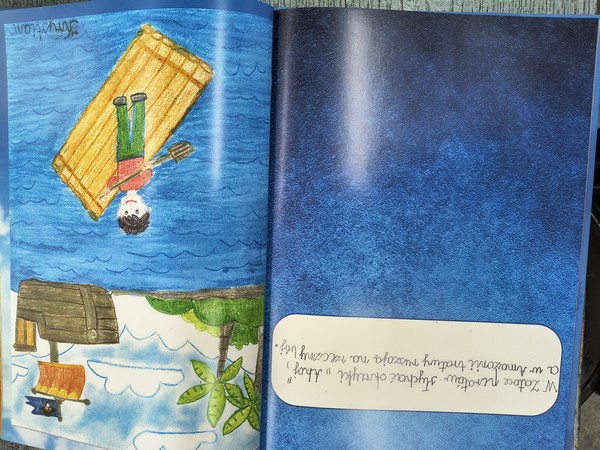 W Zatoce piratów słychać okrzyki „Ahoj”,
a w Amazonii tratwy ruszają na rzeczny bój.
Krystian